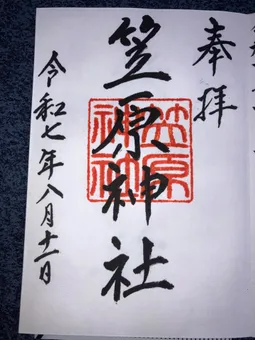 奉拝
笠原神社
笠原
令和七年八月十一日